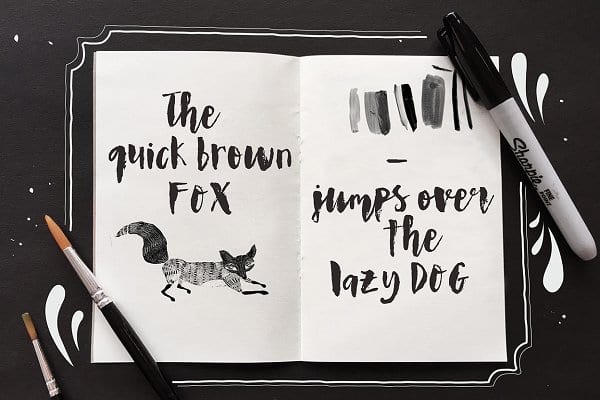 The
quick brown
FOX
jumps over
the
lazy DOG
Sharpie
FINE POINT